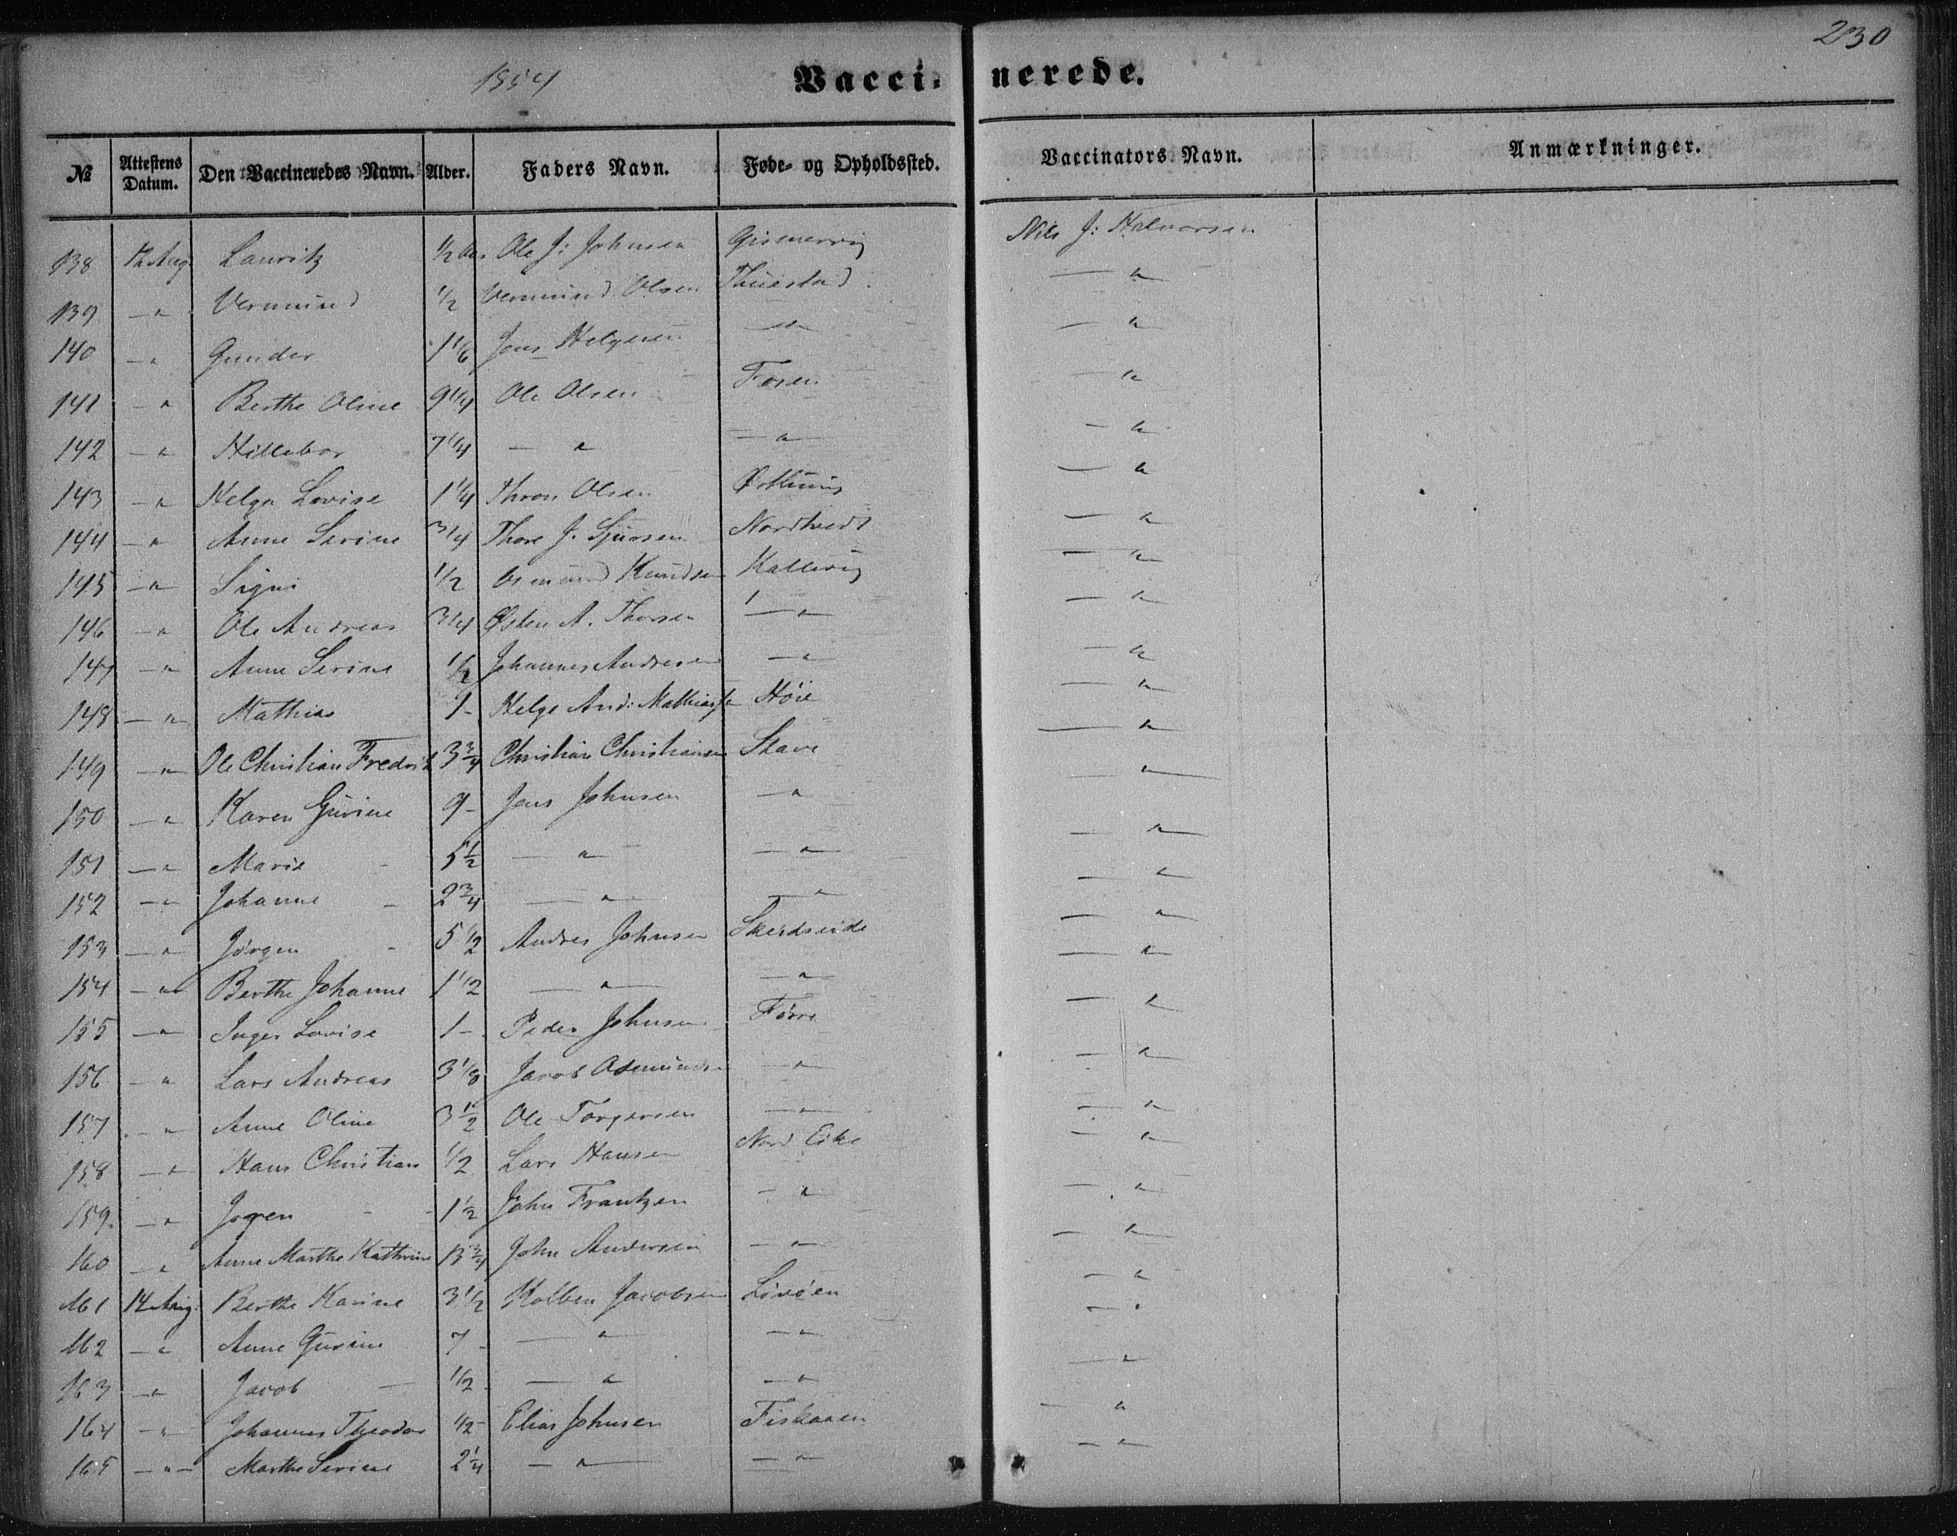 230
1854 Vaccinerede.
№ Attestens Datum. Den Vaccineredes Navn. Alder. Faders Navn. Føde- og Opholdssted. Vaccinators Navn. Anmærkninger.
138 Aug. Lauritz 1/2 Ole J: Johnsen Gismervig Nils J: Halvorsen
139 — " Vermund 1/2 Vermund Olsen Tuestad — "
140 — " Gunder 1 1/6 Jens Helgesen — " — "
141 — " Berthe Oline 9 1/4 Ole Olsen Fosen — "
142 — " Hillebor 7 1/4 — " — " — "
143 — " Helga Lovise 1 1/4 Thron Olsen — "
144 — " Anne Serine 3/4 Thore J: Sjursen Nordtvedt — "
145 — " Signi 1/2 Osmund Knudsen Kallevig — "
146 — " Ole Andreas 3/4 Østen A. Thorsen — " — "
147 — " Anne Serine 1/2 Johannes Andresen — " — "
148 — " Mathias 9 - Helge And: Mathias Høie — "
149 — " Ole Christian Fredrik 3 3/4 Christian Christiansen Stave — "
150 — " Karen Gurine 9 - Jens Johnsen — " — "
151 — " Marie - 5 1/2 — " — " — "
152 — " Johanne - 2 3/4 — " — " — "
153 — " Jørgen - 5 1/2 Andres Johnsen — "
154 — " Berthe Johanne 1 1/2 — " — " — "
155 — " Inger Lovise 1 - Peder Johnsen Førre — "
156 — " Lars Andreas 3 1/8 Jacob Osmunds — " — "
157 — " Anne Oline 3 1/2 Ole Torgersen — " — "
158 — " Hans Christian 1/2 Lars Hansen Nord Eike — "
159 — " Joren - 1 1/2 John Frantzen — " — "
160 — " Anne Marthe Kathrine 13 3/4 John Andersen — " — "
161 14 Aug. Berthe Karine 3 1/2 Kolben Jacobsen Løvøen — "
162 — " Anne Gurine 7 - — " — " — "
163 — " Jacob — 1/2 — " — " — "
164 — " Johannes Theodor Elias Johnsen Fiskaaen — "
165 — " — Marthe Serine 2 1/4 — " — " — "